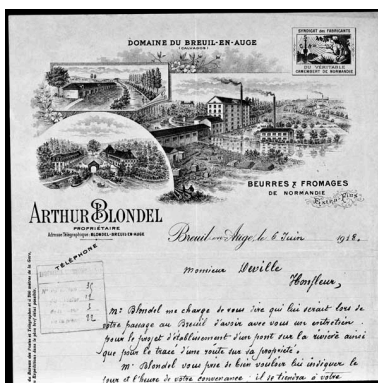 DOMAINE DU BREUIL-EN-AUGE
(CALVADOS)
SYNDICAT des FABRICANTS
DU VÉRITABLE
CAMEMBERT DE NORMANDIE
BEURRES & FROMAGES
DE NORMANDIE
Extra-Fins
ARTHUR BLONDEL
PROPRIÉTAIRE
Adresse Télégraphique: BLONDEL-BREUIL-EN-AUGE
TÉLÉPHONE
Breuil-en-Auge, le 6 Juin 1918.
Monsieur Deville
Honfleur,
Mr Blondel me charge de vous dire qu'il lui serait lors de
votre passage au Breuil d'avoir avec vous un entretien
pour le projet d'établissement d'un pont sur la rivière ainsi
que pour le tracé d'une route sur sa propriété.
Mr Blondel vous prie de bien vouloir lui indiquer le
jour et l'heure de votre convenance : il se tiendra à votre